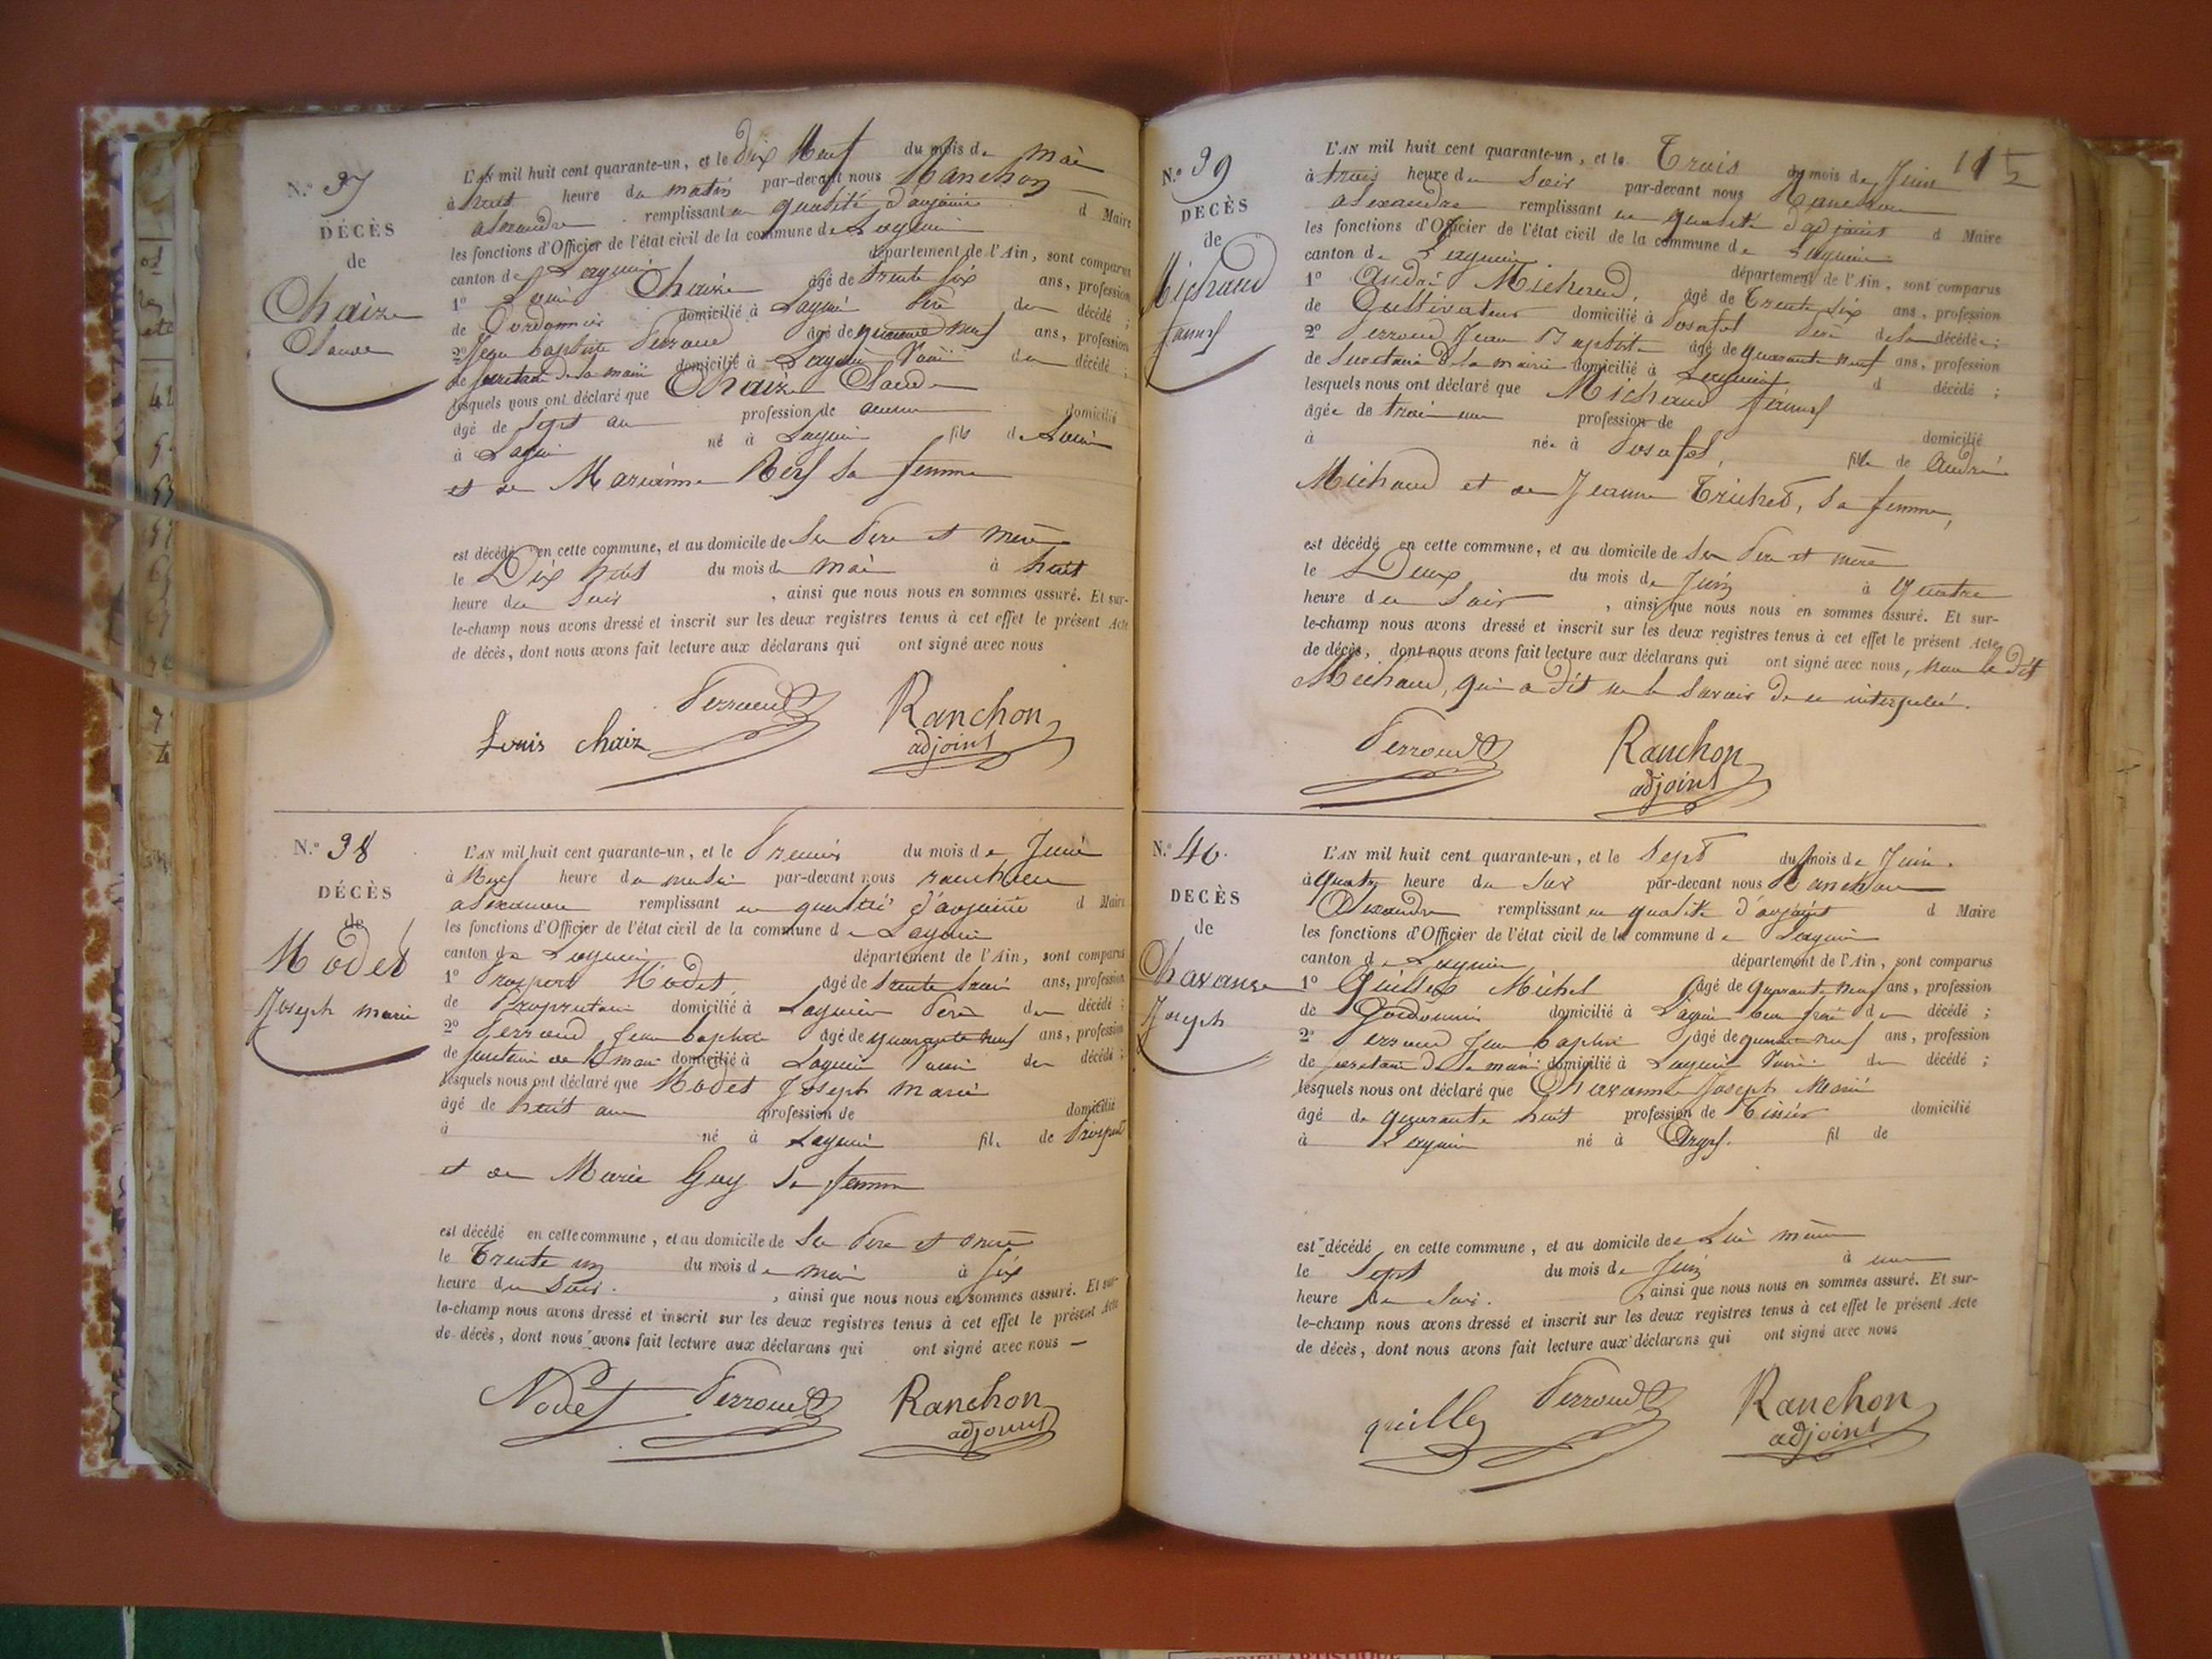 N.º 37
DÉCÈS
de
Chaize
Claude
L'AN mil huit cent quarante-un, et le dix Neuf du mois de mai
à huit heure du matin par-devant nous Ranchon
alexandre remplissant en qualité d'adjoint d Maire
les fonctions d'Officier de l'état civil de la commune de Lagnieu
canton de Lagnieu département de l'Ain, sont comparus
1º Louis Chaize âgé de trente six ans, profession
de Cordonnier domicilié à Lagnieu Père du décédé ;
2º Jean baptiste Perroud âgé de quarante neuf ans, profession
de secretaire de la mairie domicilié à Lagnieu Voisin du décédé ;
lesquels nous ont déclaré que Chaize Claude
âgé de Sept ans profession de aucune domicilié
à Lagnieu né à Lagnieu fils de Louis
et de Marianne Rey sa femme
est décédé en cette commune, et au domicile de Ses Père et mère
le Dix huit du mois de mai à huit
heure du Soir , ainsi que nous nous en sommes assuré. Et sur-
le-champ nous avons dressé et inscrit sur les deux registres tenus à cet effet le présent Acte
de décès, dont nous avons fait lecture aux déclarans qui ont signé avec nous
Louis chaiz Perroud Ranchon
adjoint
N.º 38
DÉCÈS
de
Nodet
Joseph marie
L'AN mil huit cent quarante-un, et le Premier du mois de Juin
à Neuf heure du matin par-devant nous ranchon
alexandre remplissant en qualité d'adjoint d Maire
les fonctions d'Officier de l'état civil de la commune de Lagnieu
canton de Lagnieu département de l'Ain, sont comparus
1º Prosper Nodet âgé de trente trois ans, profession
de Propriétaire domicilié à Lagnieu Père du décédé ;
2º Perroud Jean baptiste âgé de quarante neuf ans, profession
de secretaire de la mairie domicilié à Lagnieu Voisin du décédé ;
lesquels nous ont déclaré que Nodet Joseph marie
âgé de huit ans profession de domicilié
à né à Lagnieu fils de Prosper
et de Marie Guy sa femme
est décédé en cette commune, et au domicile de Ses Père et mère
le Trente un du mois de mai à Six
heure du Soir. , ainsi que nous nous en sommes assuré. Et sur-
le-champ nous avons dressé et inscrit sur les deux registres tenus à cet effet le présent Acte
de décès, dont nous avons fait lecture aux déclarans qui ont signé avec nous —
Nodet Perroud Ranchon
adjoint
115
N.º 39
DECÈS
de
Michaud
L'AN mil huit cent quarante-un, et le Trois du mois de Juin
à trois heure du Soir par-devant nous Ranchon
alexandre remplissant en qualité d'adjoint d Maire
les fonctions d'Officier de l'état civil de la commune de Lagnieu
canton de Lagnieu département de l'Ain, sont comparus
1º André Michaud, âgé de Trente Six ans, profession
de Cultivateur domicilié à Posafol Père de la décédée ;
2º Perroud Jean Baptiste âgé de quarante neuf ans, profession
de Secretaire de la mairie domicilié à Lagnieu d décédé ;
lesquels nous ont déclaré que Michaud
âgée de trois ans profession de domicilié
à née à Posafol, fille de André
Michaud et de Jeanne Trichet, sa femme,
est décédé en cette commune, et au domicile de Ses Père et mère
le Deux du mois de Juin à Quatre
heure du Soir , ainsi que nous nous en sommes assuré. Et sur-
le-champ nous avons dressé et inscrit sur les deux registres tenus à cet effet le présent Acte
de décès, dont nous avons fait lecture aux déclarans qui ont signé avec nous, non le dit
Michaud, qui a dit ne le Savoir de ce interpelé.
Perroud Ranchon
adjoint
N.º 40.
DECÈS
de
Chavanne
Joseph
L'AN mil huit cent quarante-un, et le Sept du mois de Juin.
à quatre heure du Soir par-devant nous Ranchon
Alexandre remplissant en qualité d'adjoint d Maire
les fonctions d'Officier de l'état civil de la commune de Lagnieu
canton de Lagnieu département de l'Ain, sont comparus
1º Michel âgé de quarante neuf ans, profession
de Cordonnier domicilié à Lagnieu beau frère du décédé ;
2º Perroud Jean baptiste âgé de quarante neuf ans, profession
de secretaire de la mairie domicilié à Lagnieu Voisin du décédé ;
lesquels nous ont déclaré que Chavanne Joseph Marie
âgé de quarante huit profession de Tissier domicilié
à Lagnieu né à fil de
est décédé en cette commune, et au domicile de Lui même
le Sept du mois de Juin à une
heure du Soir. , ainsi que nous nous en sommes assuré. Et sur-
le-champ nous avons dressé et inscrit sur les deux registres tenus à cet effet le présent Acte
de décès, dont nous avons fait lecture aux déclarans qui ont signé avec nous
Perroud Ranchon
adjoint